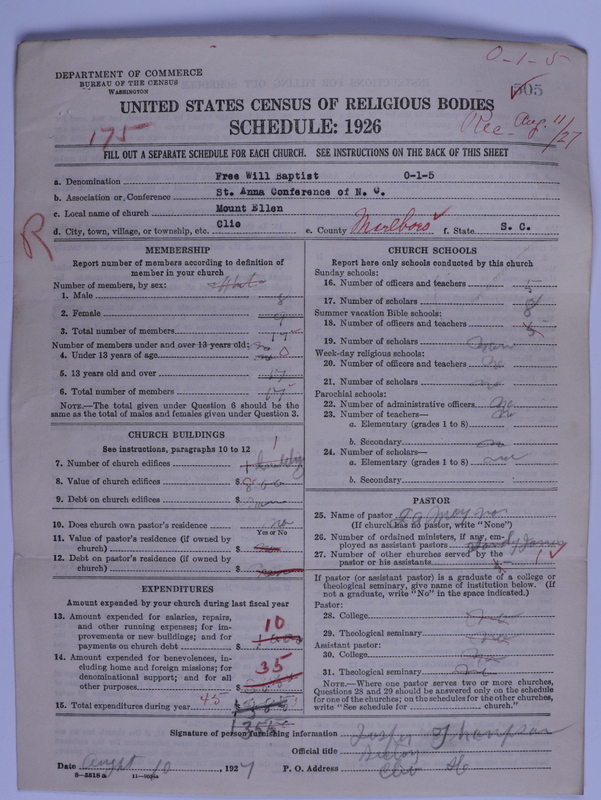 0-1-5
DEPARTMENT OF COMMERCE
BUREAU OF THE CENSUS
WASHINGTON
505
UNITED STATES CENSUS OF RELIGIOUS BODIES
SCHEDULE: 1926
175
Rec- Aug. 11/27
FILL OUT A SEPARATE SCHEDULE FOR EACH CHURCH. SEE INSTRUCTIONS ON THE BACK OF THIS SHEET
a. Denomination Free Will Baptist 0-1-5
b. Association or Conference St. Anna Conference of N. C.
c. Local name of church Mount Ellen
d. City, town, village, or township, etc. Clio e. County Marlboro f. State S. C.
R
MEMBERSHIP
Report number of members according to definition of member in your church
Number of members, by sex:
1. Male 8
2. Female 9
3. Total number of members 17
Number of members under and over 13 years old: no
4. Under 13 years of age 0
5. 13 years old and over 17
6. Total number of members 17
NOTE.—The total given under Question 6 should be the same as the total of males and females given under Question 3.
CHURCH BUILDINGS
See instructions, paragraphs 10 to 12
7. Number of church edifices 1
8. Value of church edifices $
9. Debt on church edifices $
10. Does church own pastor's residence no
Yes or No
11. Value of pastor's residence (if owned by church) $
12. Debt on pastor's residence (if owned by church) $
EXPENDITURES
Amount expended by your church during last fiscal year
13. Amount expended for salaries, repairs, and other running expenses; for improvements or new buildings; and for payments on church debt $ 10
14. Amount expended for benevolences, including home and foreign missions; for denominational support; and for all other purposes $ 35
15. Total expenditures during year 45 $
CHURCH SCHOOLS
Report here only schools conducted by this church
Sunday schools:
16. Number of officers and teachers 5
17. Number of scholars 8
Summer vacation Bible schools:
18. Number of officers and teachers 5
19. Number of scholars
Week-day religious schools:
20. Number of officers and teachers no
21. Number of scholars no
Parochial schools:
22. Number of administrative officers no
23. Number of teachers—
a. Elementary (grades 1 to 8)
b. Secondary
24. Number of scholars—
a. Elementary (grades 1 to 8)
b. Secondary
PASTOR
25. Name of pastor
(If church has no pastor, write "None")
26. Number of ordained ministers, if any, employed as assistant pastors
27. Number of other churches served by the pastor or his assistants 1
If pastor (or assistant pastor) is a graduate of a college or theological seminary, give name of institution below. (If not a graduate, write "No" in the space indicated.)
Pastor:
28. College
29. Theological seminary
Assistant pastor:
30. College
31. Theological seminary
NOTE.—Where one pastor serves two or more churches, Questions 28 and 29 should be answered only on the schedule for one of the churches; on the schedules for the other churches, write "See schedule for church."
Signature of person furnishing information Thompson
Official title
Date 10, 1927 P. O. Address Clio SC
8-5518 a